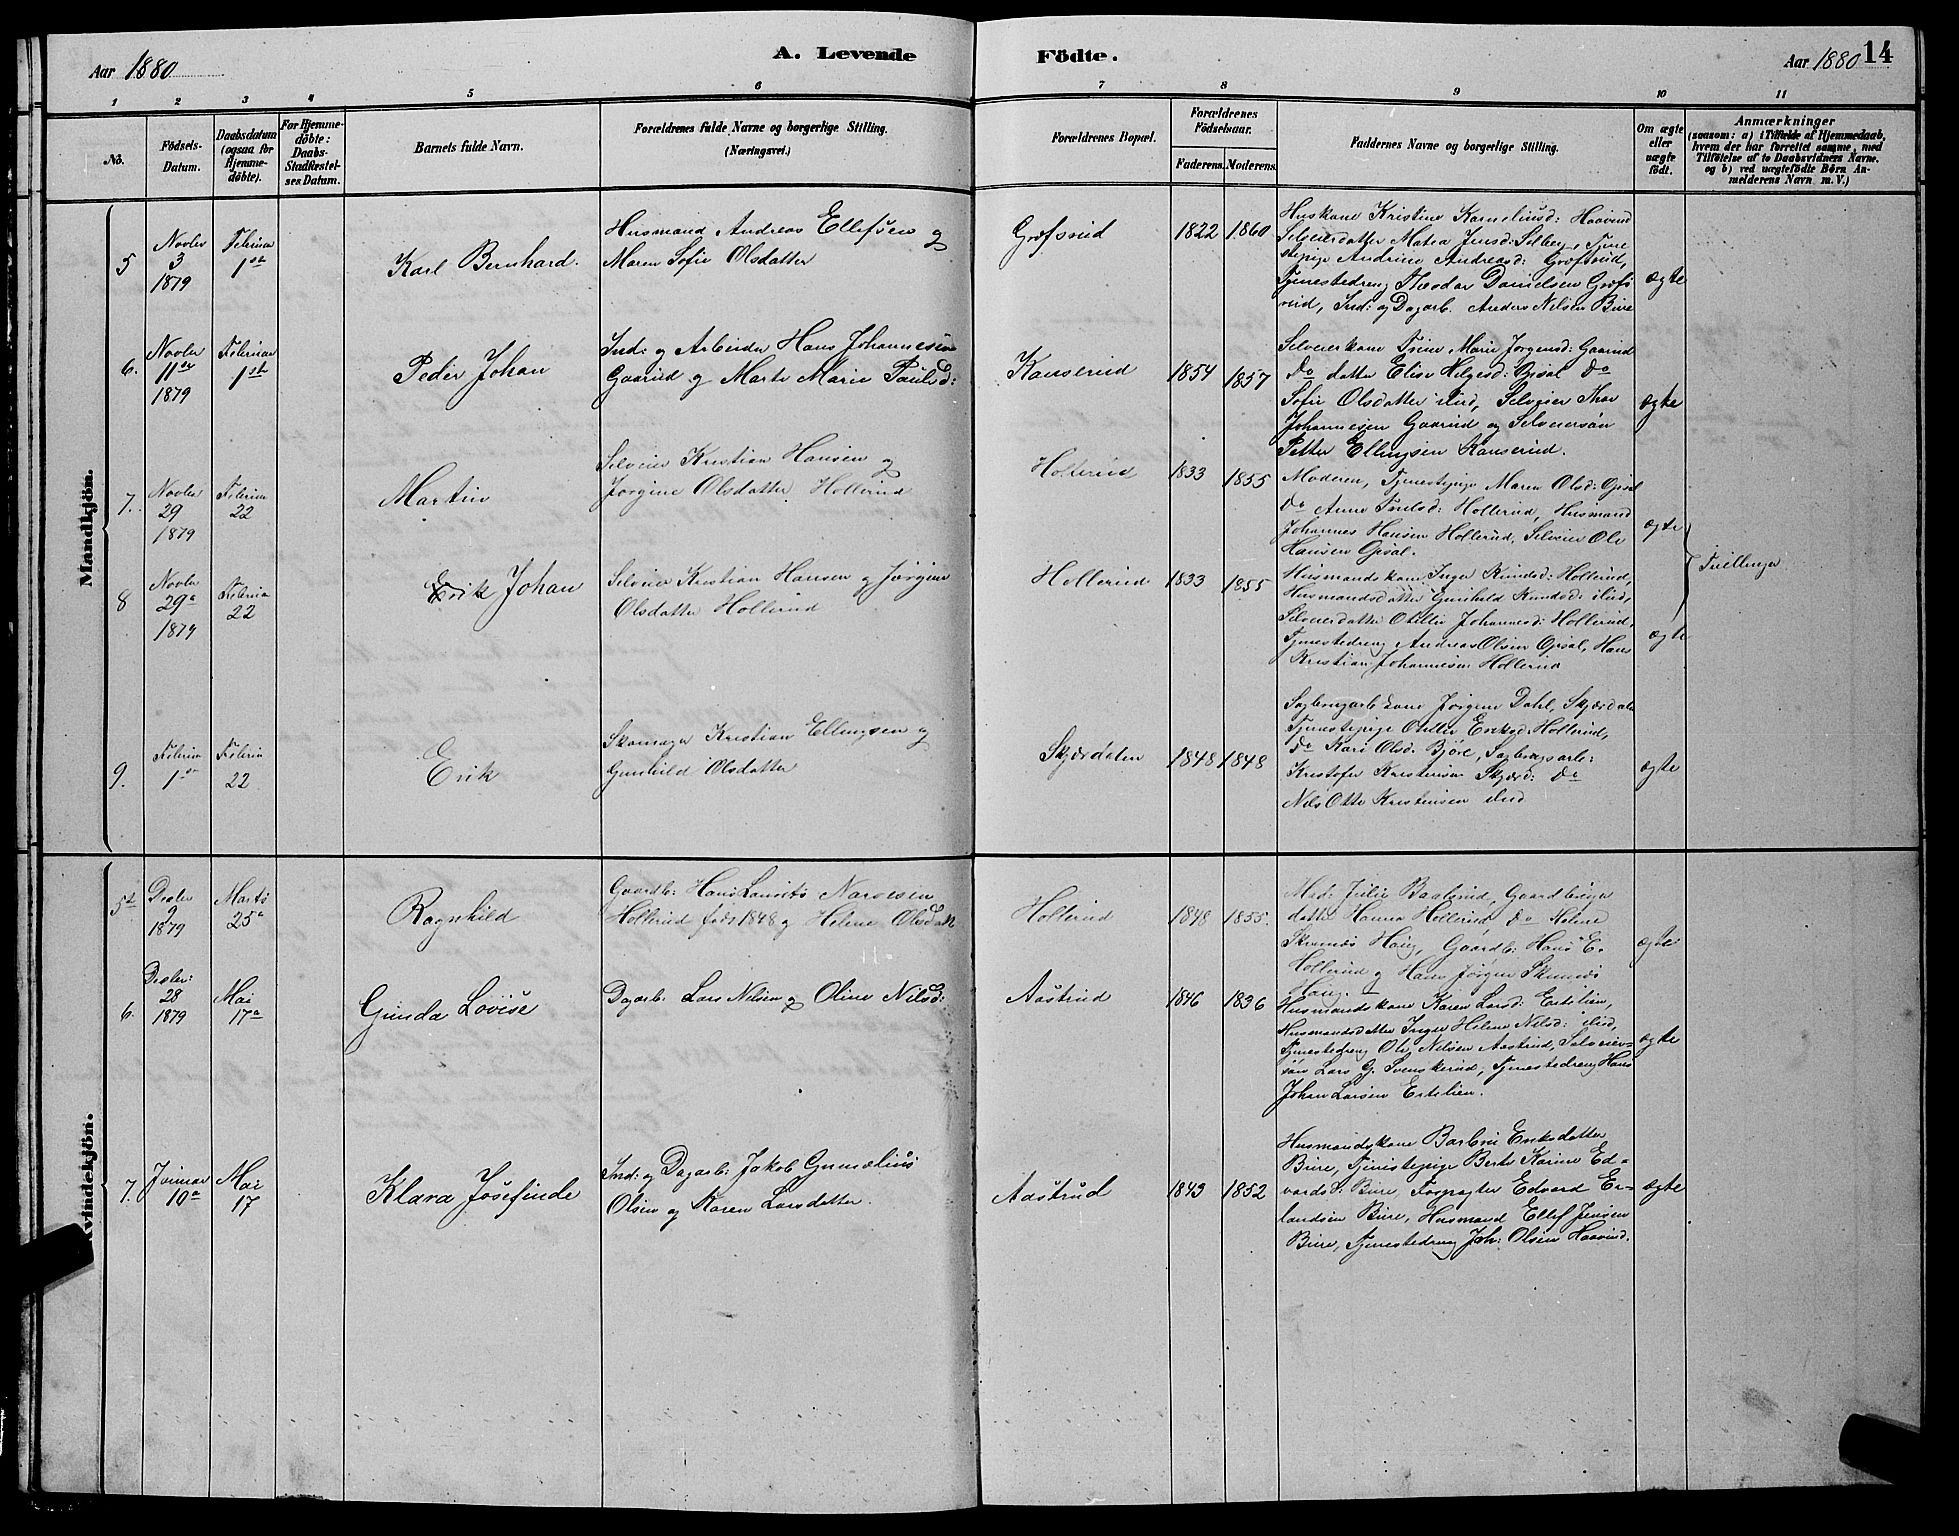 Aar 1880
A. Levende
Födte.
Aar 1880
14
1 2 3 4 5 6 7 8 9 10 11
No.
Födsels-
Datum.
Daabsdatum
(ogsaa for
Hjemme-
døbte).
For Hjemme-
døbte:
Daabs-
Stadfæstel-
ses Datum.
Barnets fulde Navn.
Forældrenes fulde Navne og borgerlige Stilling.
(Næringsvei.)
Forældrenes Bopæl.
Forældrenes
Födselsaar.
Faderens. Moderens.
Faddernes Navne og borgerlige Stilling.
Om ægte
eller
uægte
født.
Anmærkninger
(saasom: a) i Tilfælde af Hjemmedaab,
hvem der har forrettet samme, med
Tilföielse af to Daabsvidners Navne.
og b) ved uægtefödte Börn An-
melderens Navn m. V.)
Mandkjön.
5
Novbr
3
1879
1
Karl Bernhard.
Husmand Andreas Ellefsen og
Maren Sofie Olsdatter
Græfsrud
1822 1860
Huskone Kristine Kornelius​d: Haavind
Selveierdatter Matea Jensd: Selberg, Tjene
stepige Andrine Andreasd: Græfsrud,
Tjenestedreng Theodor Danielsen Græfs
rud, Ind: og Dagarb. Anders Nilsen Bure
ægte
6.
Novbr
11
1879
Februar
1ste
Peder Johan
Ind: og Arbeider Hans Johannesen
Gaarud og Marte Marie Paulsd:
Kanserud
1854 1857
Selveierkone Trine Marie Jørgensd: Gaarud
Do datter Elise Helgesd: Opsal Do
Sofie Olsdatter ibid, Selveier Thor
Johannesen Gaarud og Selveiersøn
Petter Ellingsen Kanserud.
ægte
7.
Novbr
29
1879
22
Martin
Selveier Kristian Hansen og
Jørgine Olsdatter Hollerud
Hollerud
1833 1855
Moderen, Tjenestepige Maren Olsd: Opsal
Do Anne Hollerud, Husmand
Johannes Hansen Hollerud, Selveier Ole
Hansen Opsal.
ægte
Tvillinger
8
Novbr
29
1879
22
Erik Johan
Selveier Kristian Hansen og Jørgine
Olsdatter Hollerud
Hollerud
1833 1855
Husmandskone Inger Knudsd: Hollerud,
Husmandsdatter Gunhild Knudsd: ibid,
Selveierdatter Otilie Johannesd: Hollerud,
Tjenestedreng Andreas Olsen Opsal, Hans
Kristian Johannesen Hollerud
ægte
9.
1
22
Erik
Skomager Kristian Ellingsen og
Gunhild Olsdatter
Skjærdalen
1848 1848
Sagbrugarb kone Jørgine Dahl, Skjærdalen
Tjenestepige Otilie Eriksd: Hollerud,
Do Kari Olsd: Björe, Sagbrugsarb:
Kristofer Kristensen Skjærd: Do
Nils Otto Kristensen ibid
ægte
Kvindekjön.
5te
Decbr
9
1879
Marts
25
Ragnhild
Gaardb: Hans Laurits Narvesen
Hollerud født 1848 og Helene Olsdatt
Hollerud
1848 1855.
Mad: Julie Baalerud, Gaardbruger
datter Hanna Hollerud Do Helene
Haug, Gaardb: Hans E.
Hollerud og Hans Jørgen
Haug.
ægte
6.
Decbr:
28
1879
Mai
17
Gunda Lovise
Dagarb: Lars Nilsen og Oline Nilsd:
Aastrud
1846 1836
Husmandskone Karen Larsd: Ertelien,
Husmandsdatter Inger Helene Nilsd: ibid,
Tjenestedreng Ole Nilsen Aastrud, Selveier-
søn Lars G. Svenskerud, Tjenestedreng Hans
Johan Larsen Ertelien.
ægte
7.
Januar
10
Mai
17
Klara Josefinde
Ind: og Dagarb: Jakob Gunelius
Olsen og Karen Larsdatter.
Aastrud
1843 1852
Husmandskone Barbro Eriksdatter
Bure, Tjenestepige Berte Karine Ed-
vardsd: Bure, Forpagter Edvard Er-
landsen Bure, Husmand Ellef Jensen
Bure, Tjenestedreng Joh: Olsen Haavind.
ægte